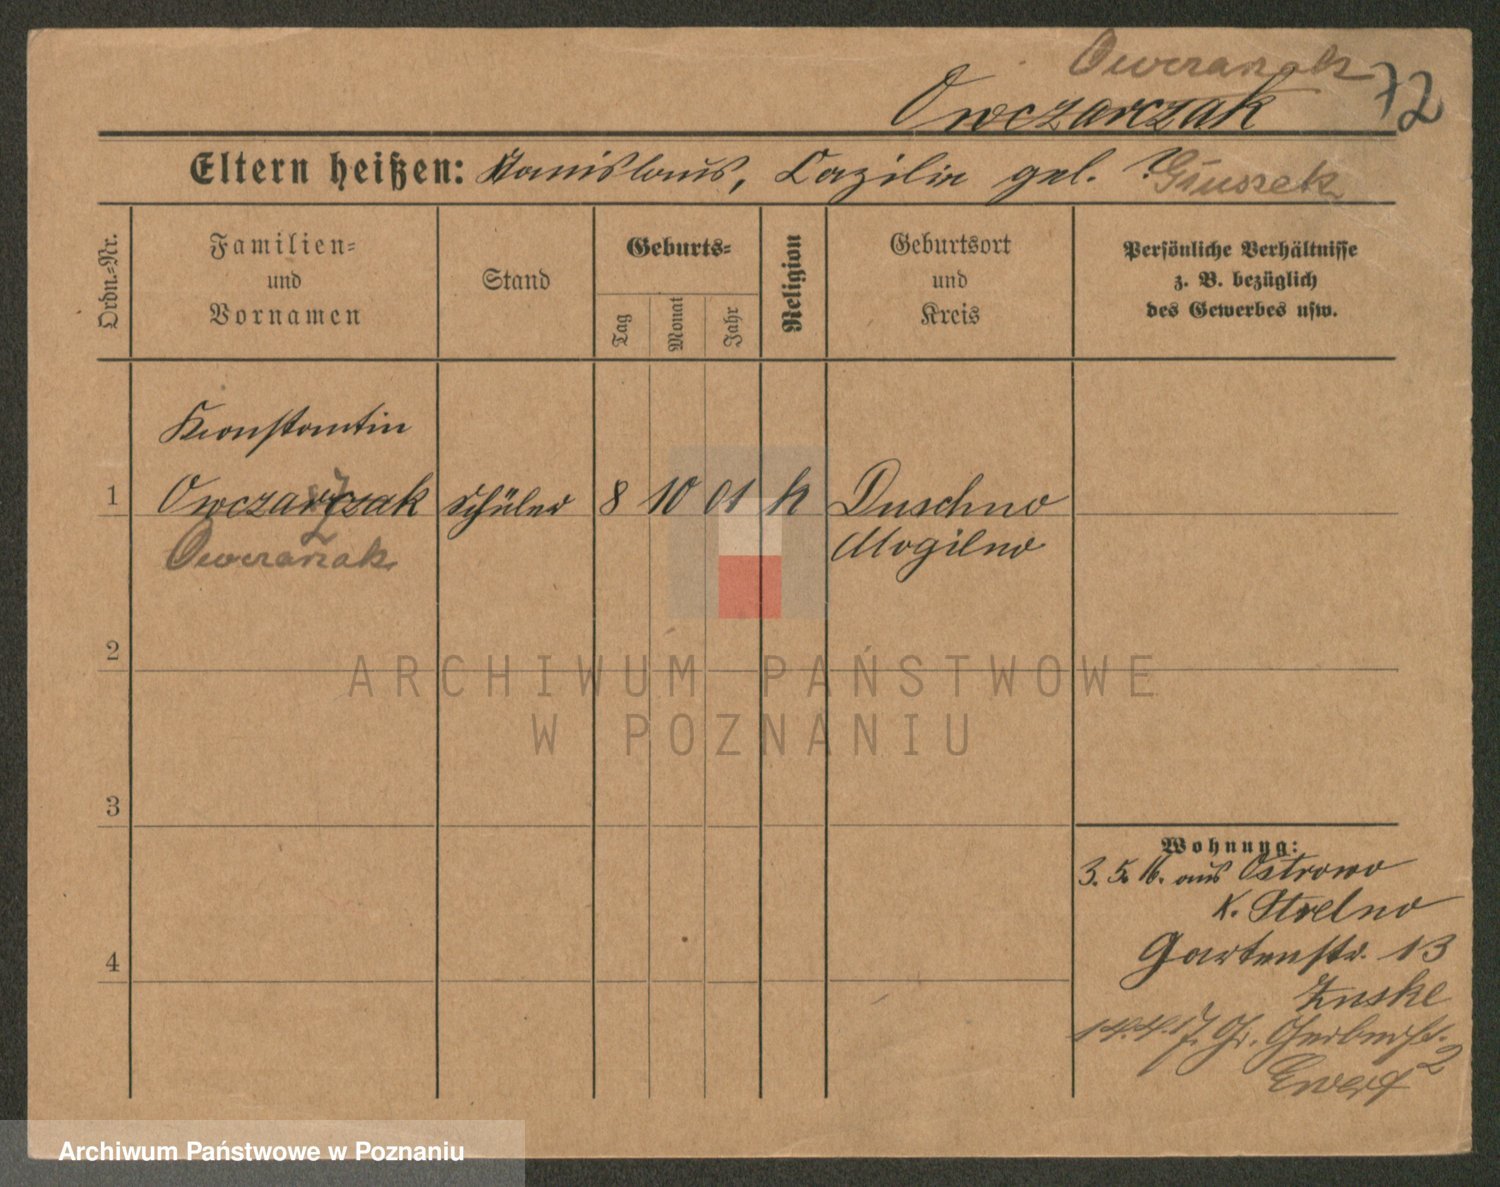 Owczarzak
72
Owczarczak
Eltern heißen: Stanislaus, Cäzilie geb. ?
Ordn.=Nr.
Familien=
und
Vornamen
Stand
Geburts=
Tag
Monat
Jahr
Religion
Geburtsort
und
Kreis
Persönliche Verhältnisse
z. B. bezüglich
des Gewerbes usw.
Konstantin
1 Owczarczak Schüler 8 10 01 k Duschno
Owczarzak Mogilno
2
ARCHIWUM PAŃSTWOWE
W POZNANIU
3
Wohnung:
3. 5. 16. aus Ostrowo
K. Strelno
4
Gartenstr. 13
Zuske
14.4.17. Gr. Gerberstr. 2
Archiwum Państwowe w Poznaniu